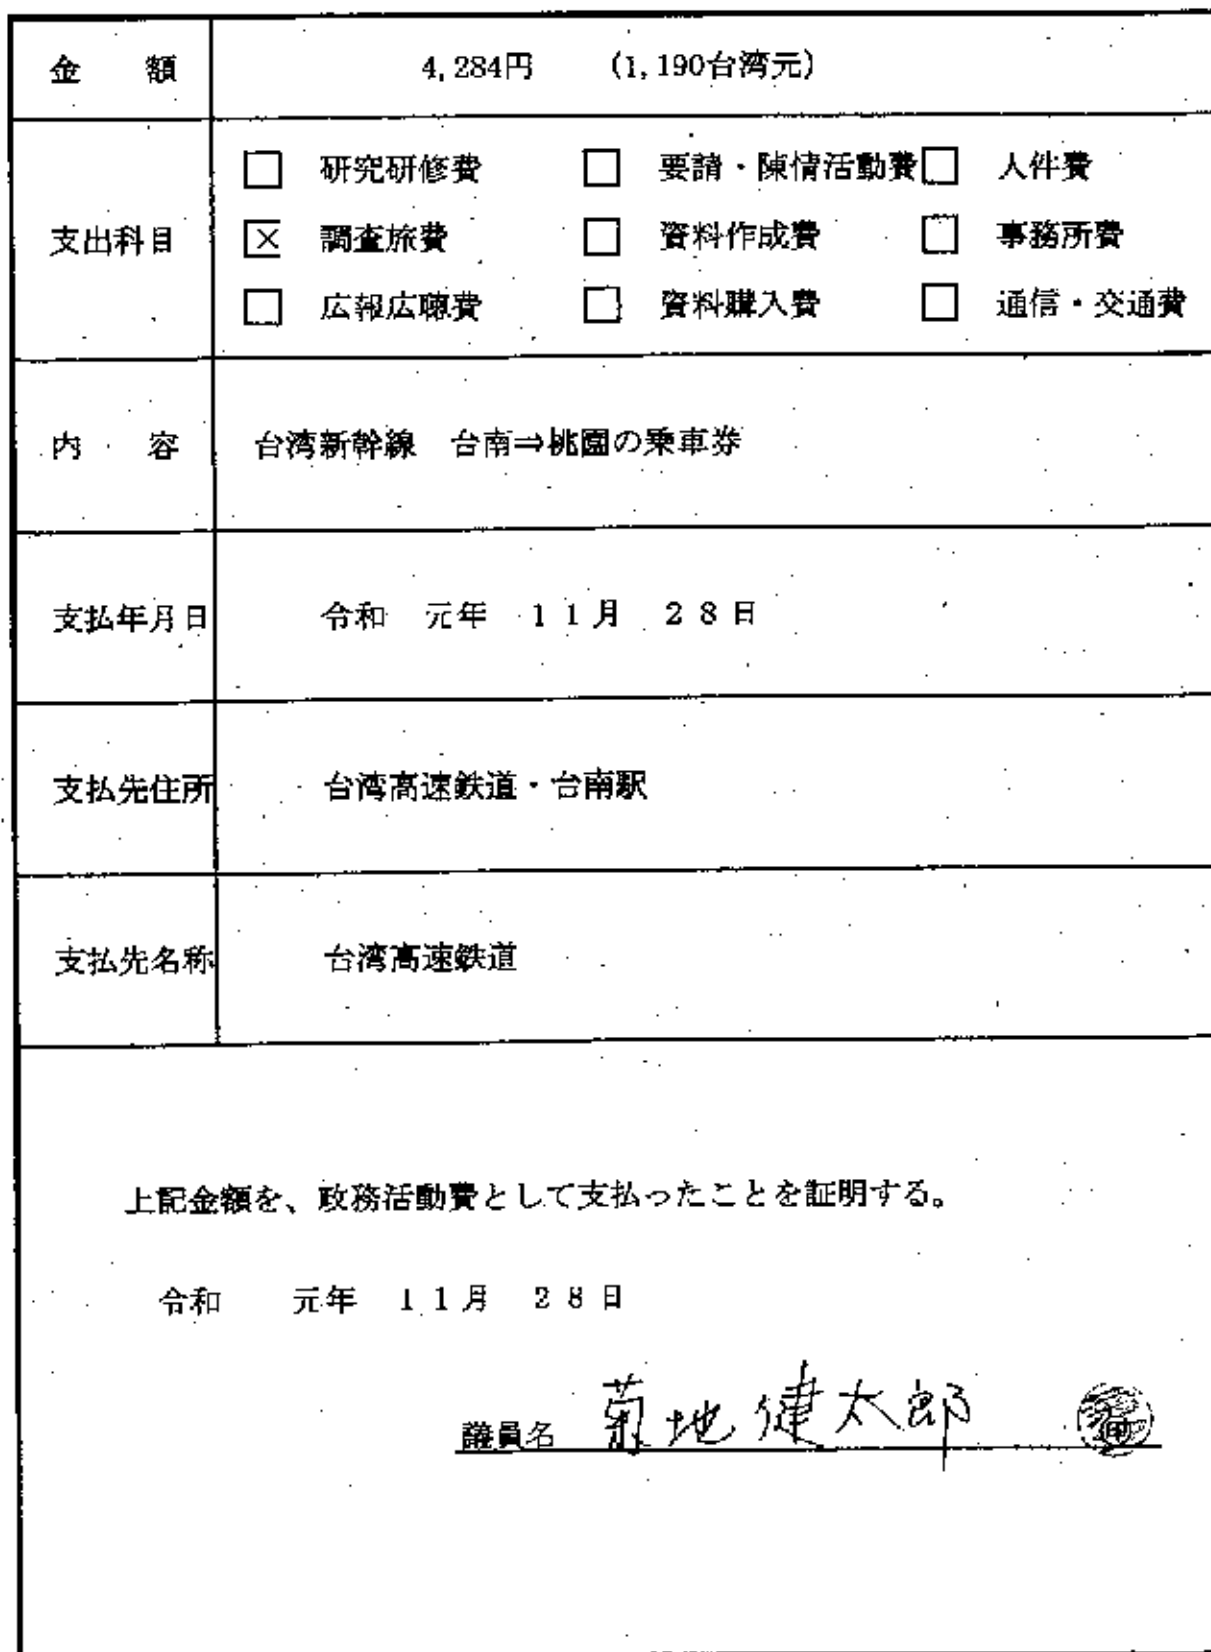 金　額　4,284円　(1,190台湾元)
□ 研究研修費　□ 要請・陳情活動費　□ 人件費
支出科目　☒ 調査旅費　□ 資料作成費　□ 事務所費
□ 広報広聴費　□ 資料購入費　□ 通信・交通費
内　容　台湾新幹線　台南⇒桃園の乗車券
支払年月日　令和　元年　11月　28日
支払先住所　台湾高速鉄道・台南駅
支払先名称　台湾高速鉄道
上記金額を、政務活動費として支払ったことを証明する。
令和　元年　11月　28日
議員名　菊地健太郎